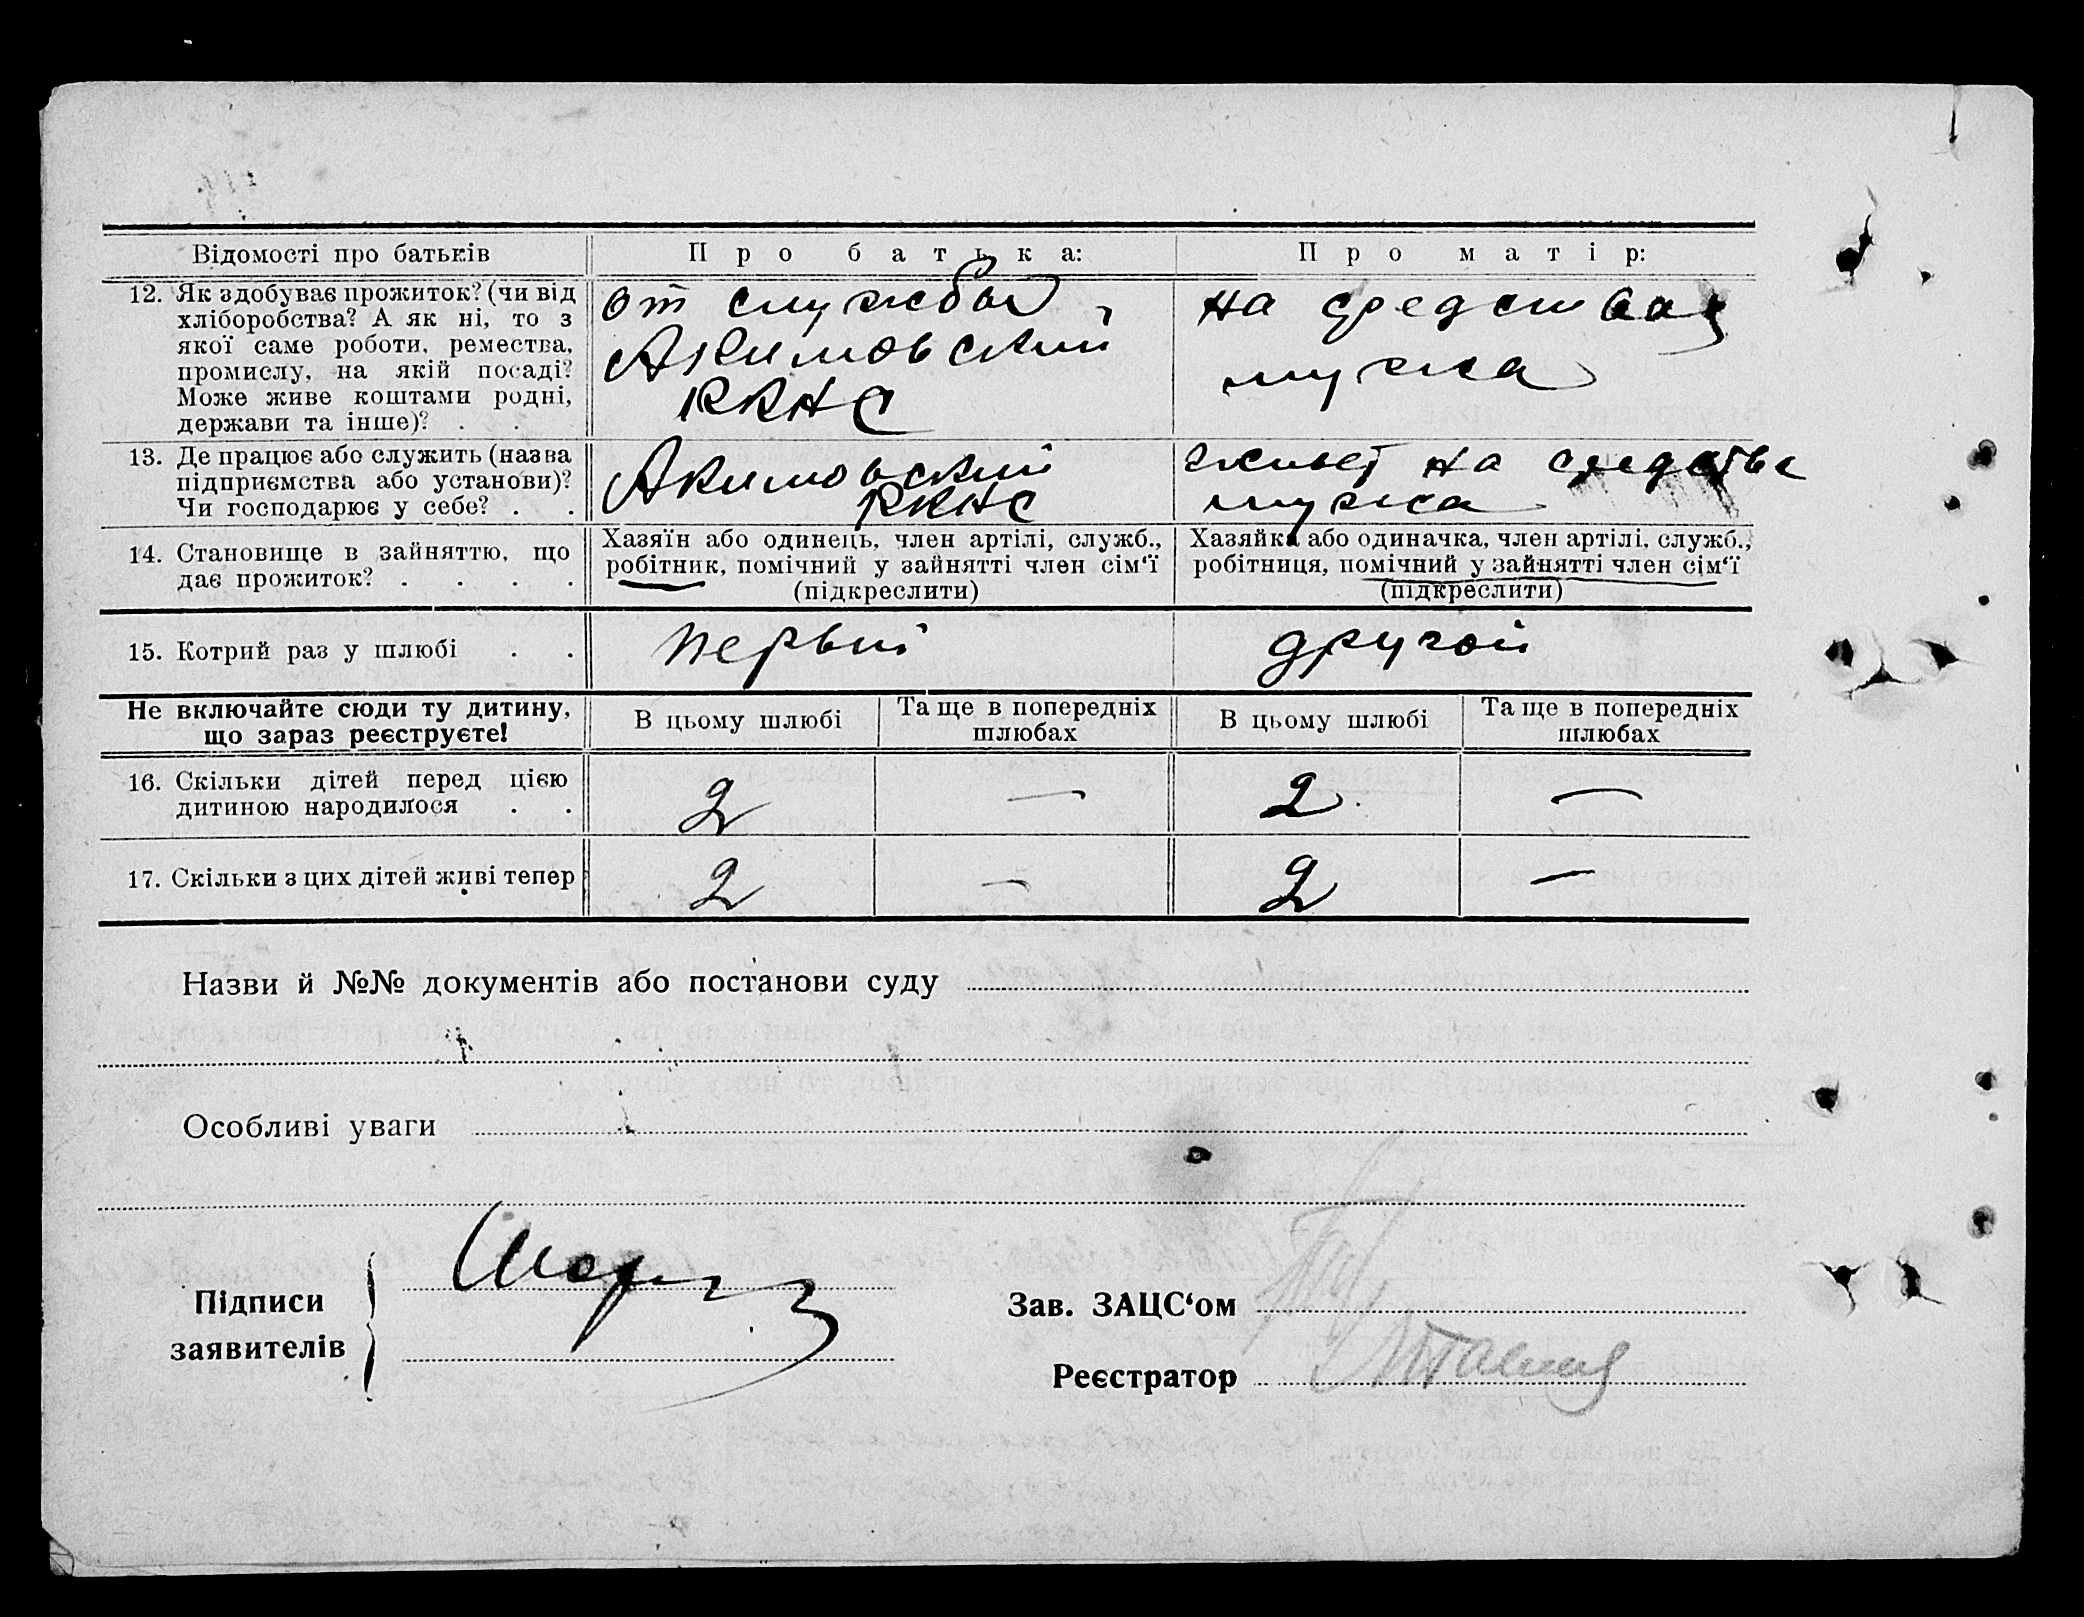 Відомості про батьків
Про батька:
Про матір:
12. Як здобуває прожиток? (чи від
хліборобства? А як ні, то з
якої саме роботи, ремества,
промислу, на якій посаді?
Може живе коштами родні,
держави та інше)? . .
от службы,
Акимовский
ККНС
на средствах
мужа
13. Де працює або служить (назва
підприємства або установи)?
Чи господарює у себе? . .
Акимовский
ККНС
живет на средства
мужа
14. Становище в зайняттю, що
дає прожиток? . . . .
Хазяїн або одинець, член артілі, служб.,
робітник, помічний у зайнятті член сім'ї
(підкреслити)
Хазяйка або одиначка, член артілі, служб.,
робітниця, помічний у зайнятті член сім'ї
(підкреслити)
15. Котрий раз у шлюбі . .
первый
другой
Не включайте сюди ту дитину,
що зараз реєструєте!
В цьому шлюбі
Та ще в попередніх
шлюбах
В цьому шлюбі
Та ще в попередніх
шлюбах
16. Скільки дітей перед цією
дитиною народилося . .
2
—
2
—
17. Скільки з цих дітей живі тепер
2
—
2
—
Назви й №№ документів або постанови суду
Особливі уваги
Підписи
заявителів
Зав. ЗАЦС'ом
Реєстратор